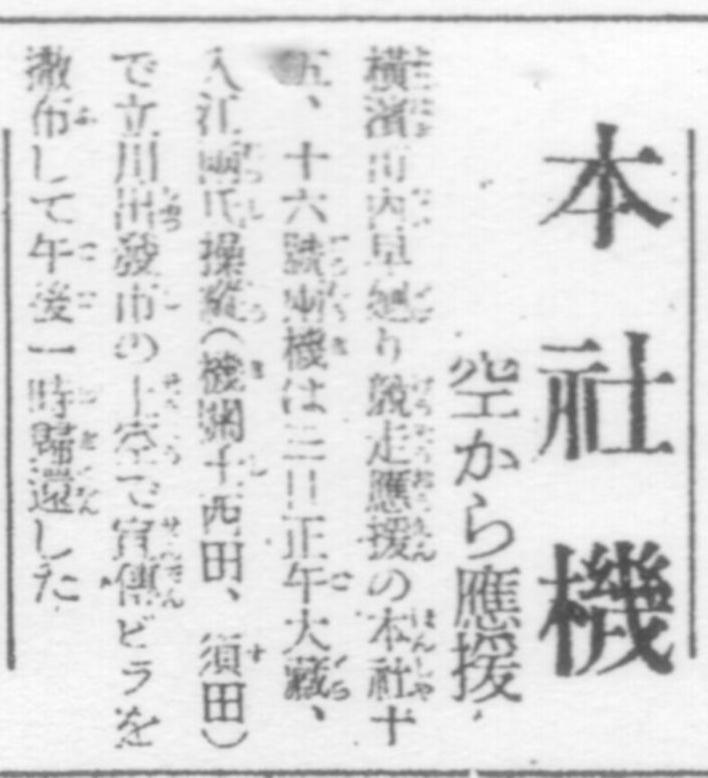 本社機
空から應援
橫濱市内早廻り競走應援の本社十
五、十六號兩機は三日正午大藏、
入江兩氏操縱(機關士西田、須田)
で立川出發市の上空で宣傳ビラを
撒布して午後一時歸還した